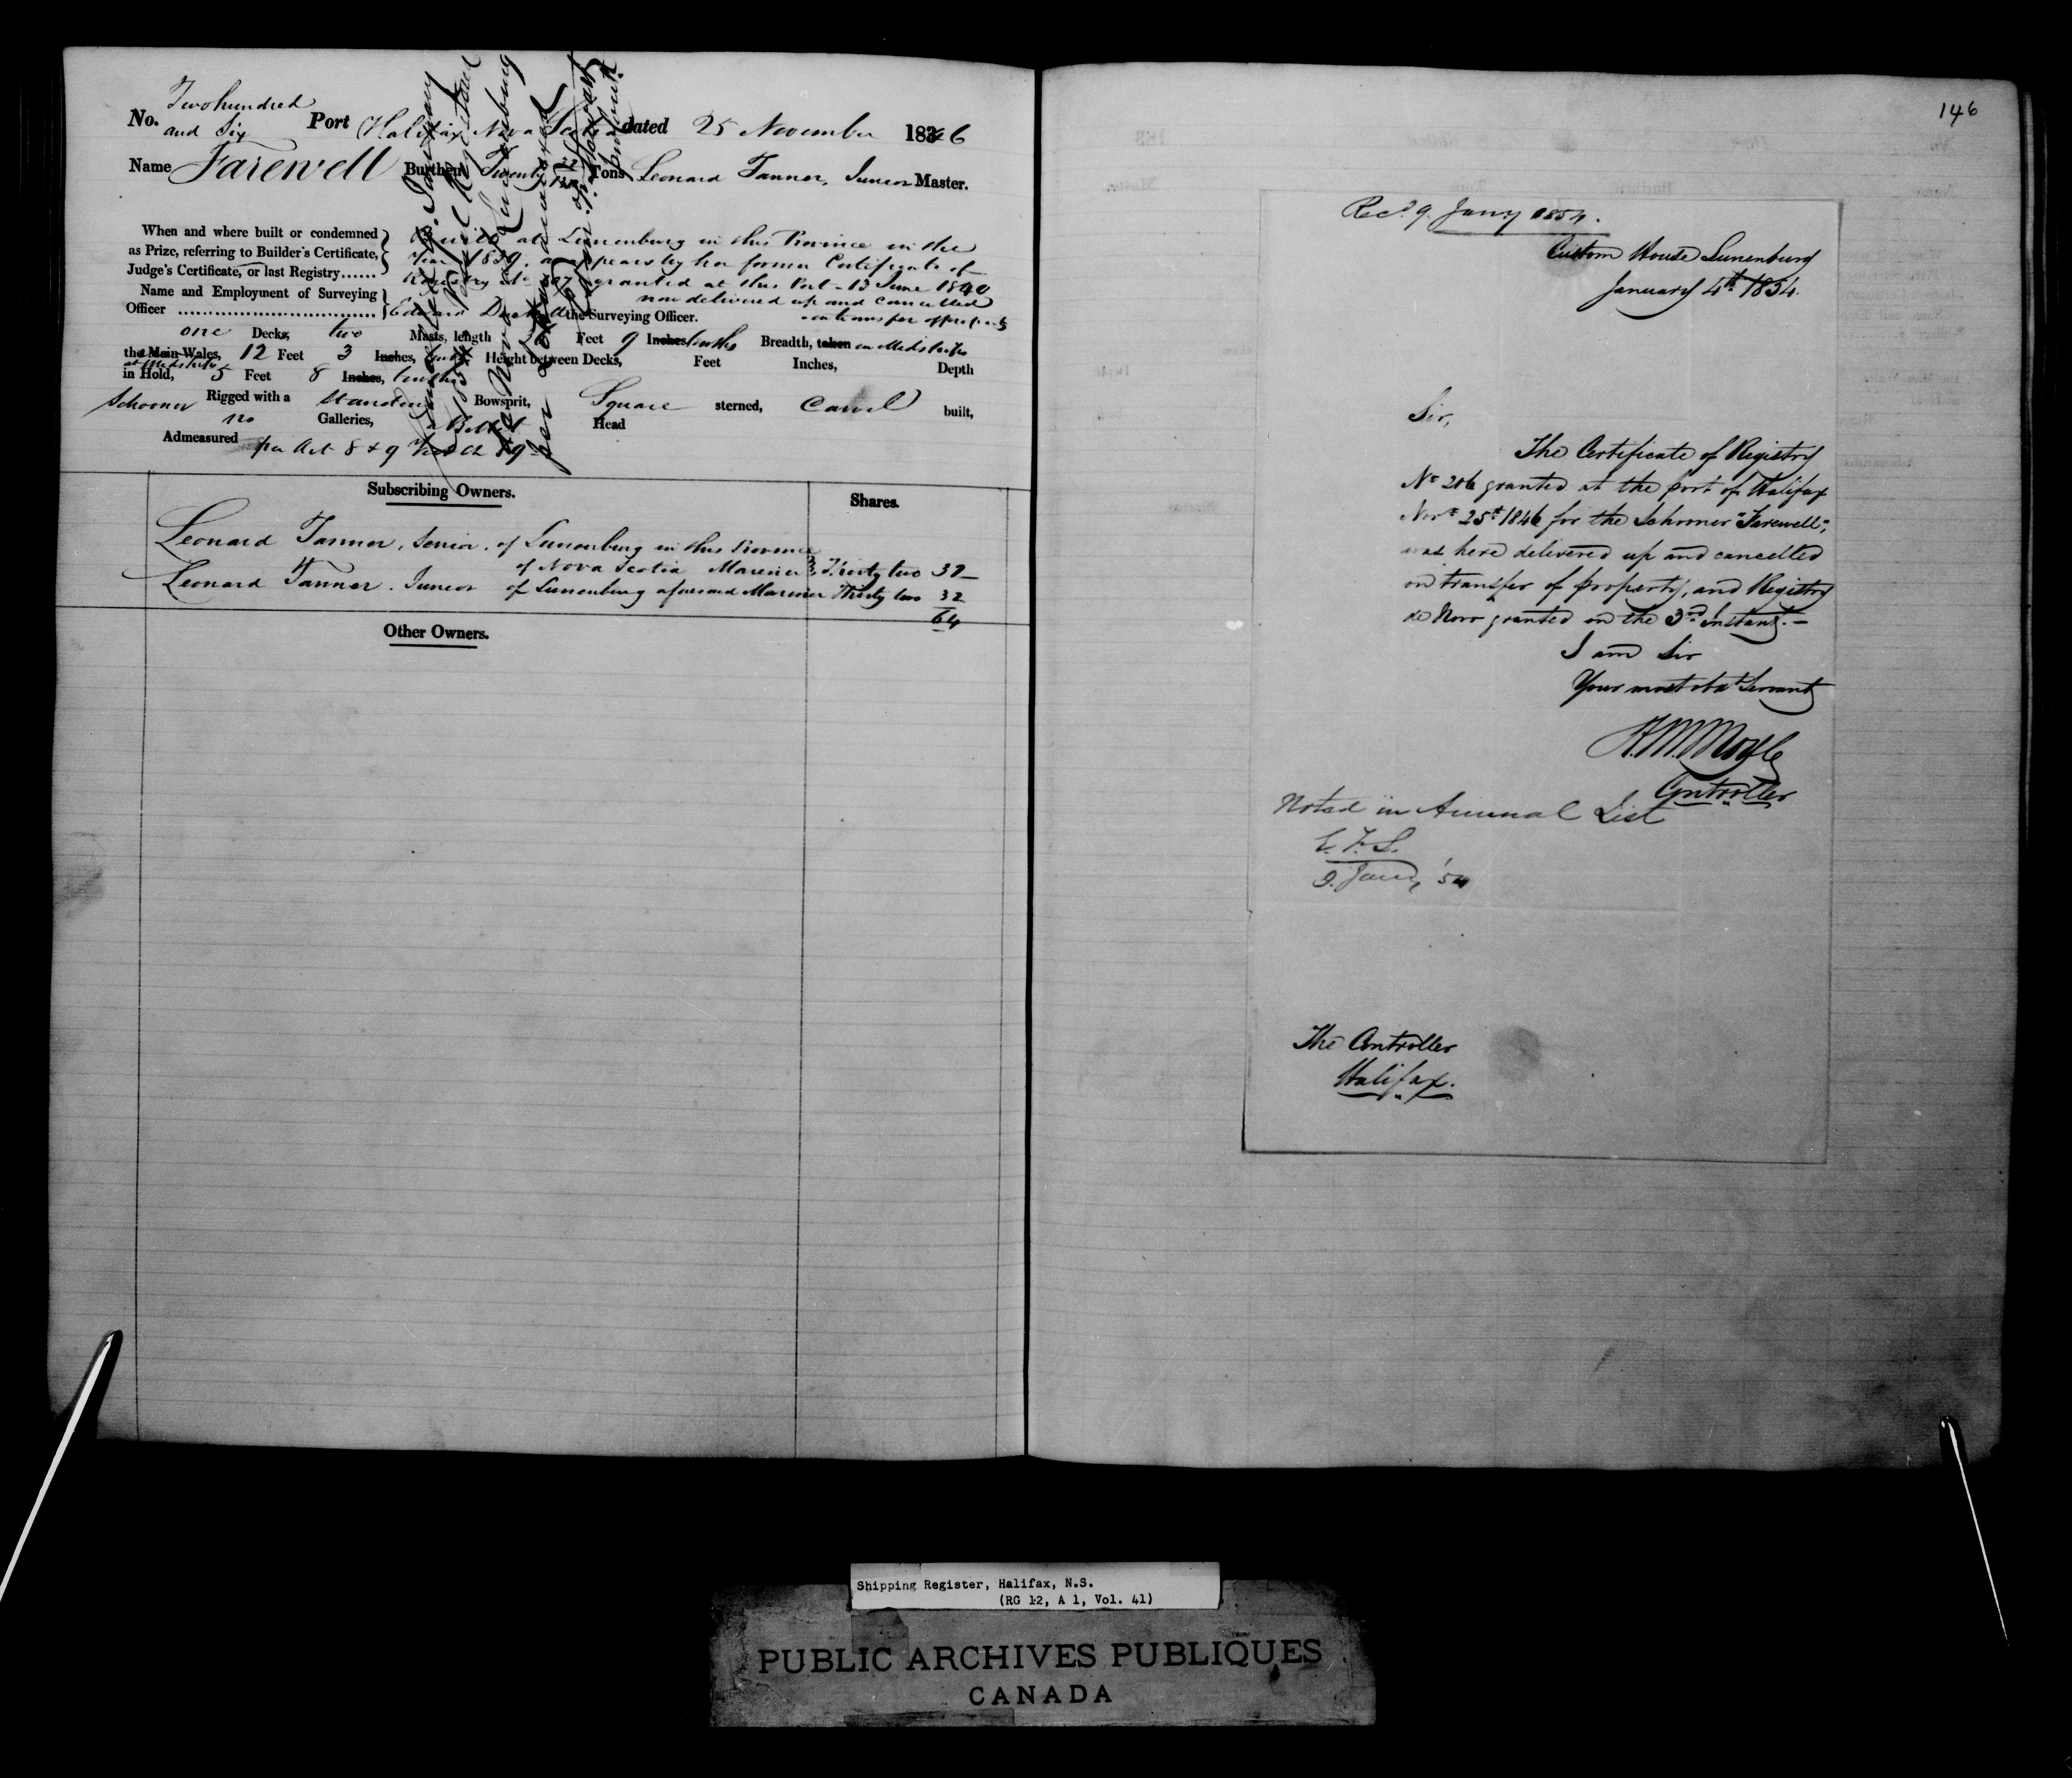 Two hundred
No. and Six Port Halifax Nova Scotia dated 25 November 1846
Name Farewell Burthen Twenty Tons Leonard Tanner, Junior Master.
When and where built or condemned
as Prize, referring to Builder's Certificate,
Judge's Certificate, or last Registry......
Built at Lunenburg in this Province in the
Year 1839, as appears by her former Certificate of
Registry No granted at this Port 13 June 1840
now delivered up and Cancelled
on transfer of property
Name and Employment of Surveying
Officer Edward the Surveying Officer.
one Decks, two Masts, length Feet 9 Inches tenths Breadth, taken in Midships
the Main Wales, 12 Feet 3 Inches, tenths Height between Decks, Feet Inches, Depth
at Midships
in Hold, 5 Feet 8 Inches, tenths
Schooner Rigged with a standing Bowsprit, Square sterned, Carvel built,
no Galleries, Head
Admeasured per Act 8 & 9 Vic Ch 89
Cancelled January
1854
de Novo Lunenburg
per
Subscribing Owners. Shares.
Leonard Tanner, Senior, of Lunenburg in this Province
of Nova Scotia Mariner Thirty two 32
Leonard Tanner, Junior of Lunenburg aforesaid Mariner Thirty two 32
64
Other Owners.
146
Recd. 9. Jany 1854.
Custom House Lunenburg
January 4th 1854.
Sir,
The Certificate of Registry
No 206 granted at the port of Halifax
Novr 25th 1846 for the Schooner "Farewell",
was here delivered up and cancelled
on transfer of property, and Registry
de Novo granted on the 3rd Instant.
I am Sir
Your most obdt Servant
Controller
Noted in Annual List
9. Jany '54
The Controller
Halifax.
Shipping Register, Halifax, N.S.
(RG 12, A 1, Vol. 41)
PUBLIC ARCHIVES PUBLIQUES
CANADA